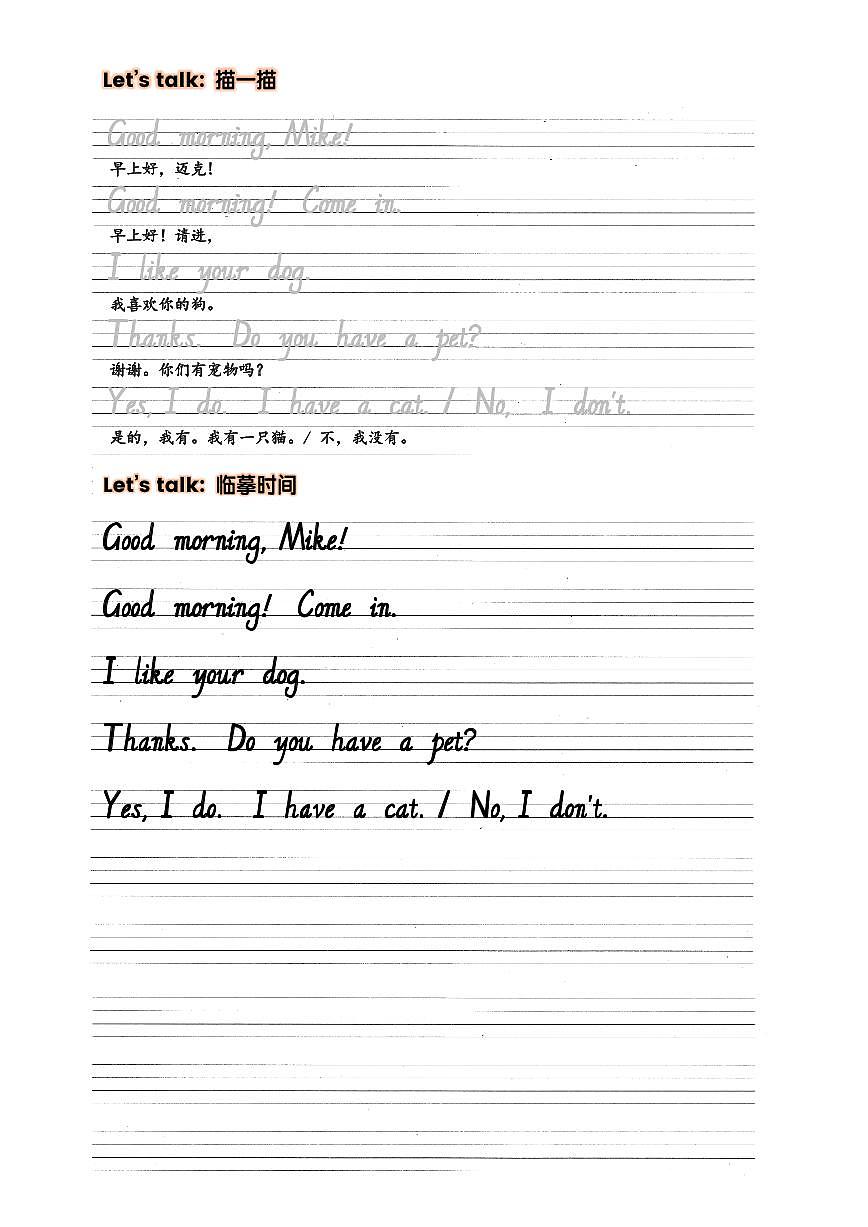 Let's talk: 描一描
Good morning, Mike!
早上好，迈克！
Good morning! Come in.
早上好！请进，
I like your dog.
我喜欢你的狗。
Thanks. Do you have a pet?
谢谢。你们有宠物吗？
Yes, I do. I have a cat. / No, I don't.
是的，我有。我有一只猫。/ 不，我没有。
Let's talk: 临摹时间
Good morning, Mike!
Good morning! Come in.
I like your dog.
Thanks. Do you have a pet?
Yes, I do. I have a cat. / No, I don't.